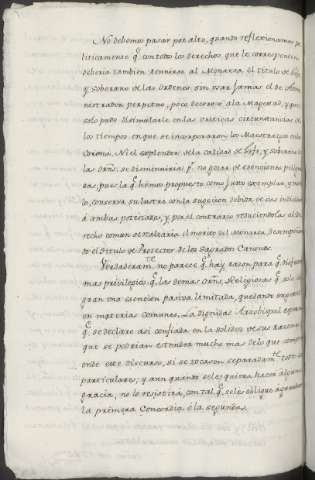 No debemos pasar por alto, quando reflexionamos po-
liticamente q.e con todos los derechos que le corresponden
deberia tambien reunirse al Monarca el titulo de Gefe
y soberano de las Ordenes, sin usar jamas el de Admi-
nistrador perpetuo, poco decoroso a la Magestad, y que
solo pudo disimularse en las criticas circunstancias de
los tiempos en que se incorporaron los Maestrazgos en la
Corona. Ni el esplendor de la calidad de Gefe, y soberano de
las Ord.s se disminuirá p.r no gozar de esenciones
pues la q.e hemos propuesto como justo exemplar,
lo, conserva su lustre con la sugecion debida de sus individuos
á ambas potestades, y por el contrario reduciendolas al De-
recho comun se realza el merito del Monarca
do el titulo de Protector de los Sagrados Canones.
Verdaderam.te no parece q.e hay razon para q.e
mas privilegios q.e las demas Ord.s Religiosas q.e solo
gran una esencion pasiva limitada, quedando sugetas
en materias comunes. La dignidad Arzobispal espera
q.e se declare asi confiada en la solidez de sus razones
que se podrian estender mucho mas de lo que
onde este discurso, si se tocaran separadam.te todos los
particulares, y aun quando se le quiera hacer alguna
gracia, no lo resistirá, con tal q.e se les obligue a guardar
la primera Concordia ó la segunda.